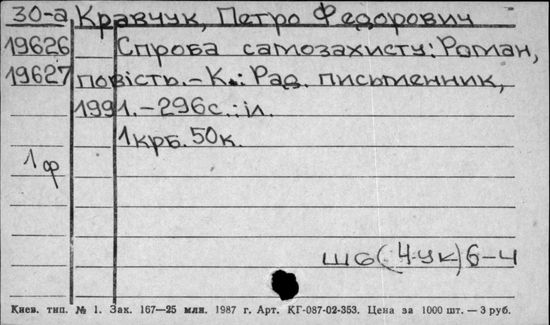 30-а Кравчук, Петро Федорович
19626 Спроба самозахисту: Роман,
19627 повість.-К.: Рад. письменник,
1991.-296с.:іл.
1крб.50к.
1ф
Ш6(4Ук)6-4
Киев. тип. № 1. Зак. 167—25 млн. 1987 г. Арт. КГ-087-02-353. Цена за 1000 шт. — 3 руб.